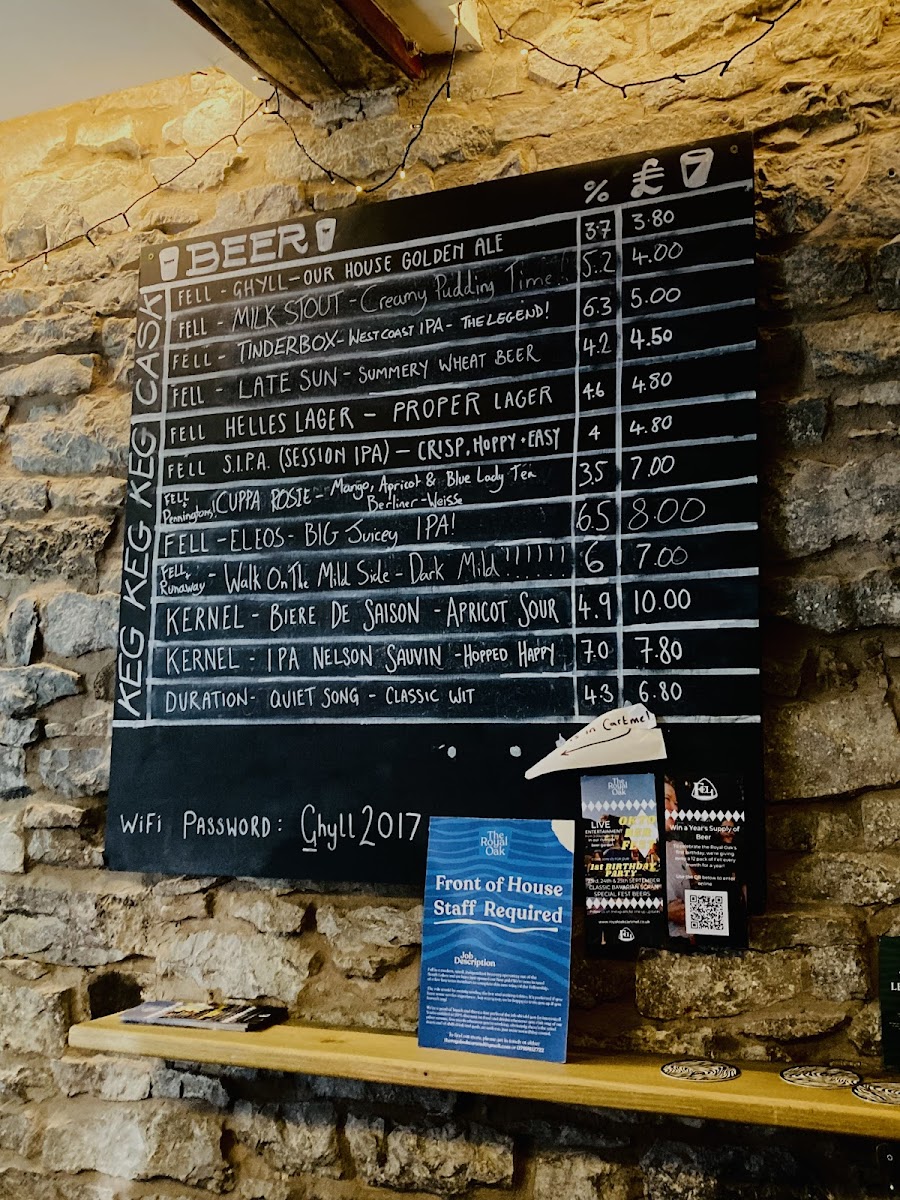 BEER % £
CASK KEG KEG KEG
FELL - GHYLL - OUR HOUSE GOLDEN ALE 3.7 3.80
FELL - MILK STOUT - Creamy Pudding Time! 5.2 4.00
FELL - TINDERBOX - WEST COAST IPA - THE LEGEND! 6.3 5.00
FELL - LATE SUN - SUMMERY WHEAT BEER 4.2 4.50
FELL HELLES LAGER - PROPER LAGER 4.6 4.80
FELL S.I.P.A. (SESSION IPA) - CRISP, HOPPY + EASY 4 4.80
FELL + Penningtons! CUPPA ROSIE - Mango, Apricot & Blue Lady Tea 3.5 7.00
Berliner-Weisse
FELL - ELEOS - BIG Juicey IPA! 6.5 8.00
FELL + Runaway - Walk On The Mild Side - Dark Mild!!!!!!! 6 7.00
KERNEL - BIERE DE SAISON - APRICOT SOUR 4.9 10.00
KERNEL - IPA NELSON SAUVIN - HOPPED HAPPY 7.0 7.80
DURATION - QUIET SONG - CLASSIC WIT 4.3 6.80
in Cartmel
WiFi PASSWORD: Ghyll2017
The
Royal
Oak
Front of House
Staff Required
Job
Description
The
Royal
Oak
LIVE
ENTERTAINMENT
1st BIRTHDAY
PARTY
CLASSIC BAVARIAN
SPECIAL FEST BEERS
FELL
Win a Year's Supply of
Beer